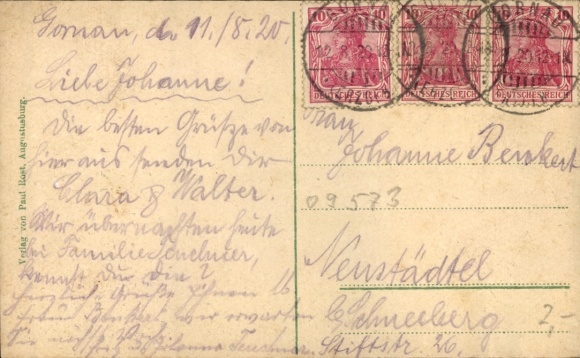 Gornau, d. 11/8.20.
Liebe Johanne!
Die besten Grüsze von
hier aus senden dir
Clara & Walter.
Wir übernachten heute
bei Familie
kennst Du die?
Herzlich Grüße
wir erwarten
Sie
Verlag von Paul Rost, Augustusburg.
10 10 10
GORNAU
DEUTSCHES REICH DEUTSCHES REICH DEUTSCHES REICH
Frau
Johanne Benkert
09573
Neustädtel
b/Schneeberg
2,-
Stiftstr. 26